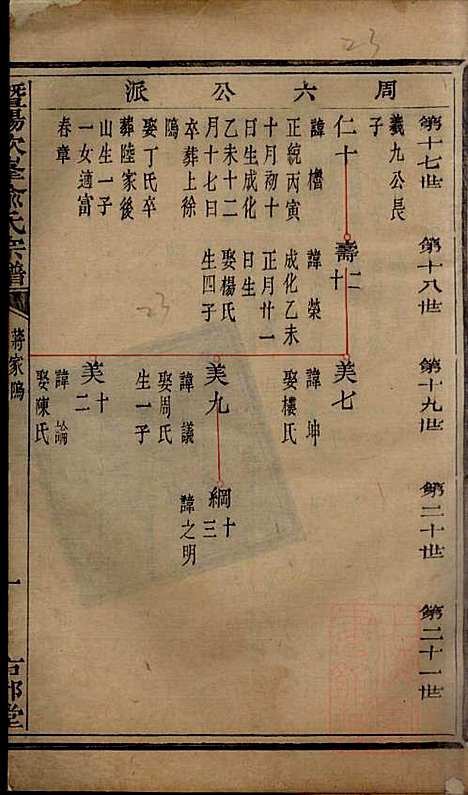 周六公派
第十七世
第十八世
第十九世
第二十世
第二十一世
義九公長
子
仁十
諱櫓
正統丙寅
十月初十
日生成化
乙未十二
月十七日
卒葬上徐
隖
娶丁氏卒
葬陸家後
山生一子
一女適富
春章
壽二十
諱榮
成化乙未
正月廿一
日生
娶楊氏
生四子
美七
諱坤
娶樓氏
美九
諱議
娶周氏
生一子
綱十三
諱之明
美十二
諱論
娶陳氏
蔣家隖
一
23
23